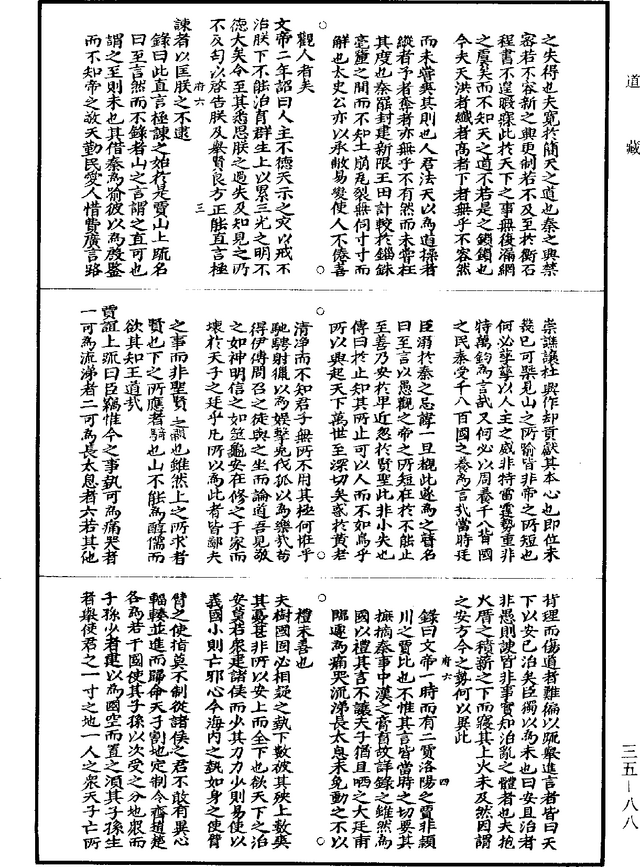 道藏
之失得也夫寬於簡天之道也秦之興禁
容若不容新之興更制若不及至於衡石
程書不遑暇寐此於天下之事無後漏網
之虞矣而不知天之道不若是之鎖鎖也
今夫天洪者纖者高者下者無乎不容然
而未嘗與其則也人君法天以為道操者
縱者予者奪者亦無乎不有然而未嘗枉
其度也秦罷封建新限王田計較於錙銖
毫釐之間而不知土崩瓦裂無何寸寸而
解也太史公亦以承敝易變使人不倦喜
觀人者矣
文帝二年詔曰人主不德天示之灾以戒不
治朕下不能治育群生上以累三光之明不
德大矣令至其悉思朕之過失及知見之所
不及匄以啓告朕及舉賢良方正能直言極
府六 三
諫者以匡朕之不逮
錄曰此直言極諫之始於是賈山上疏名
曰至言然而不錄者山之言謂之直可也
謂之至則未也其借秦為喻彼以為啓鑒
而不知帝之敬天勤民愛人惜費廣言路
崇謙讓杜興作却貢獻其本心也即位未
幾已可槩見山之所喻皆非帝之所短也
何必孳孳以人主之威非特雷霆勢重非
特萬鈞為言哉又何必以周養千八百國
之民秦受千八百國之養為言哉當時廷
臣溺於秦之忌諱一旦覩此遂為之聳名
曰至言以愚觀之帝之所短在於不能止
至善乃安於卑近怠於賢聖此非小失也
傳曰於止知其所止可以人而不如鳥乎
所以興起天下萬世至深切矣惑於黄老
清淨而不知君子無所不用其極何往乎
馳騁射獵以為娛擊兎伐狐以為樂哉苟
得伊傅周召之徒與之坐而論道吾見敬
之如神明信之如筮龜安在修之于家而
壞於天子之廷乎凡所以為此者皆鄙夫
之事而非聖賢之䫫也雖然上之所求者
賢也下之所應者騎也山不能為醇儒而
欲其知王道哉
賈誼上疏曰臣竊惟今之事埶可為痛哭者
一可為流涕者二可為長太息者六若其他
背理而傷道者難徧以疏舉進言者皆曰天
下以安已治矣臣獨以為未也曰安且治者
非愚則諛皆非事實知治亂之體者也夫抱
火厝之積薪之下而寢其上火未及然因謂
之安方今之勢何以異此
府六 四
錄曰文帝一時而有二賈洛陽之賈非潁
川之賈比也不惟其言皆當時之切要其
撫摘秦事中漢之膏肓故詳錄之雖然為
國以禮其言不讓夫子猶且哂之大廷甫
臨遂為痛哭流涕長太息未免動之不以
禮未善也
夫樹國固必相疑之埶下數被其殃上數爽
其憂甚非所以安上而全下也欲天下之治
安莫若衆建諸侯而少其力力少則易使以
義國小則亡邪心令海内之埶如身之使臂
臂之使指莫不制從諸侯之君不敢有異心
輻輳並進而歸命天子割地定制令齊趙楚
各為若干國使其子孫以次受之分地衆而
子孫少者建以為國空而置之須其子孫生
者舉使君之一寸之地一人之衆天子亡所
三五—八八